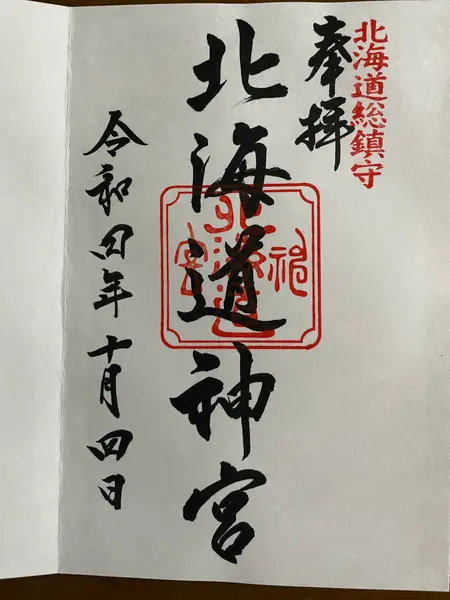 北海道総鎮守
奉拝
北海道神宮
令和四年十月四日